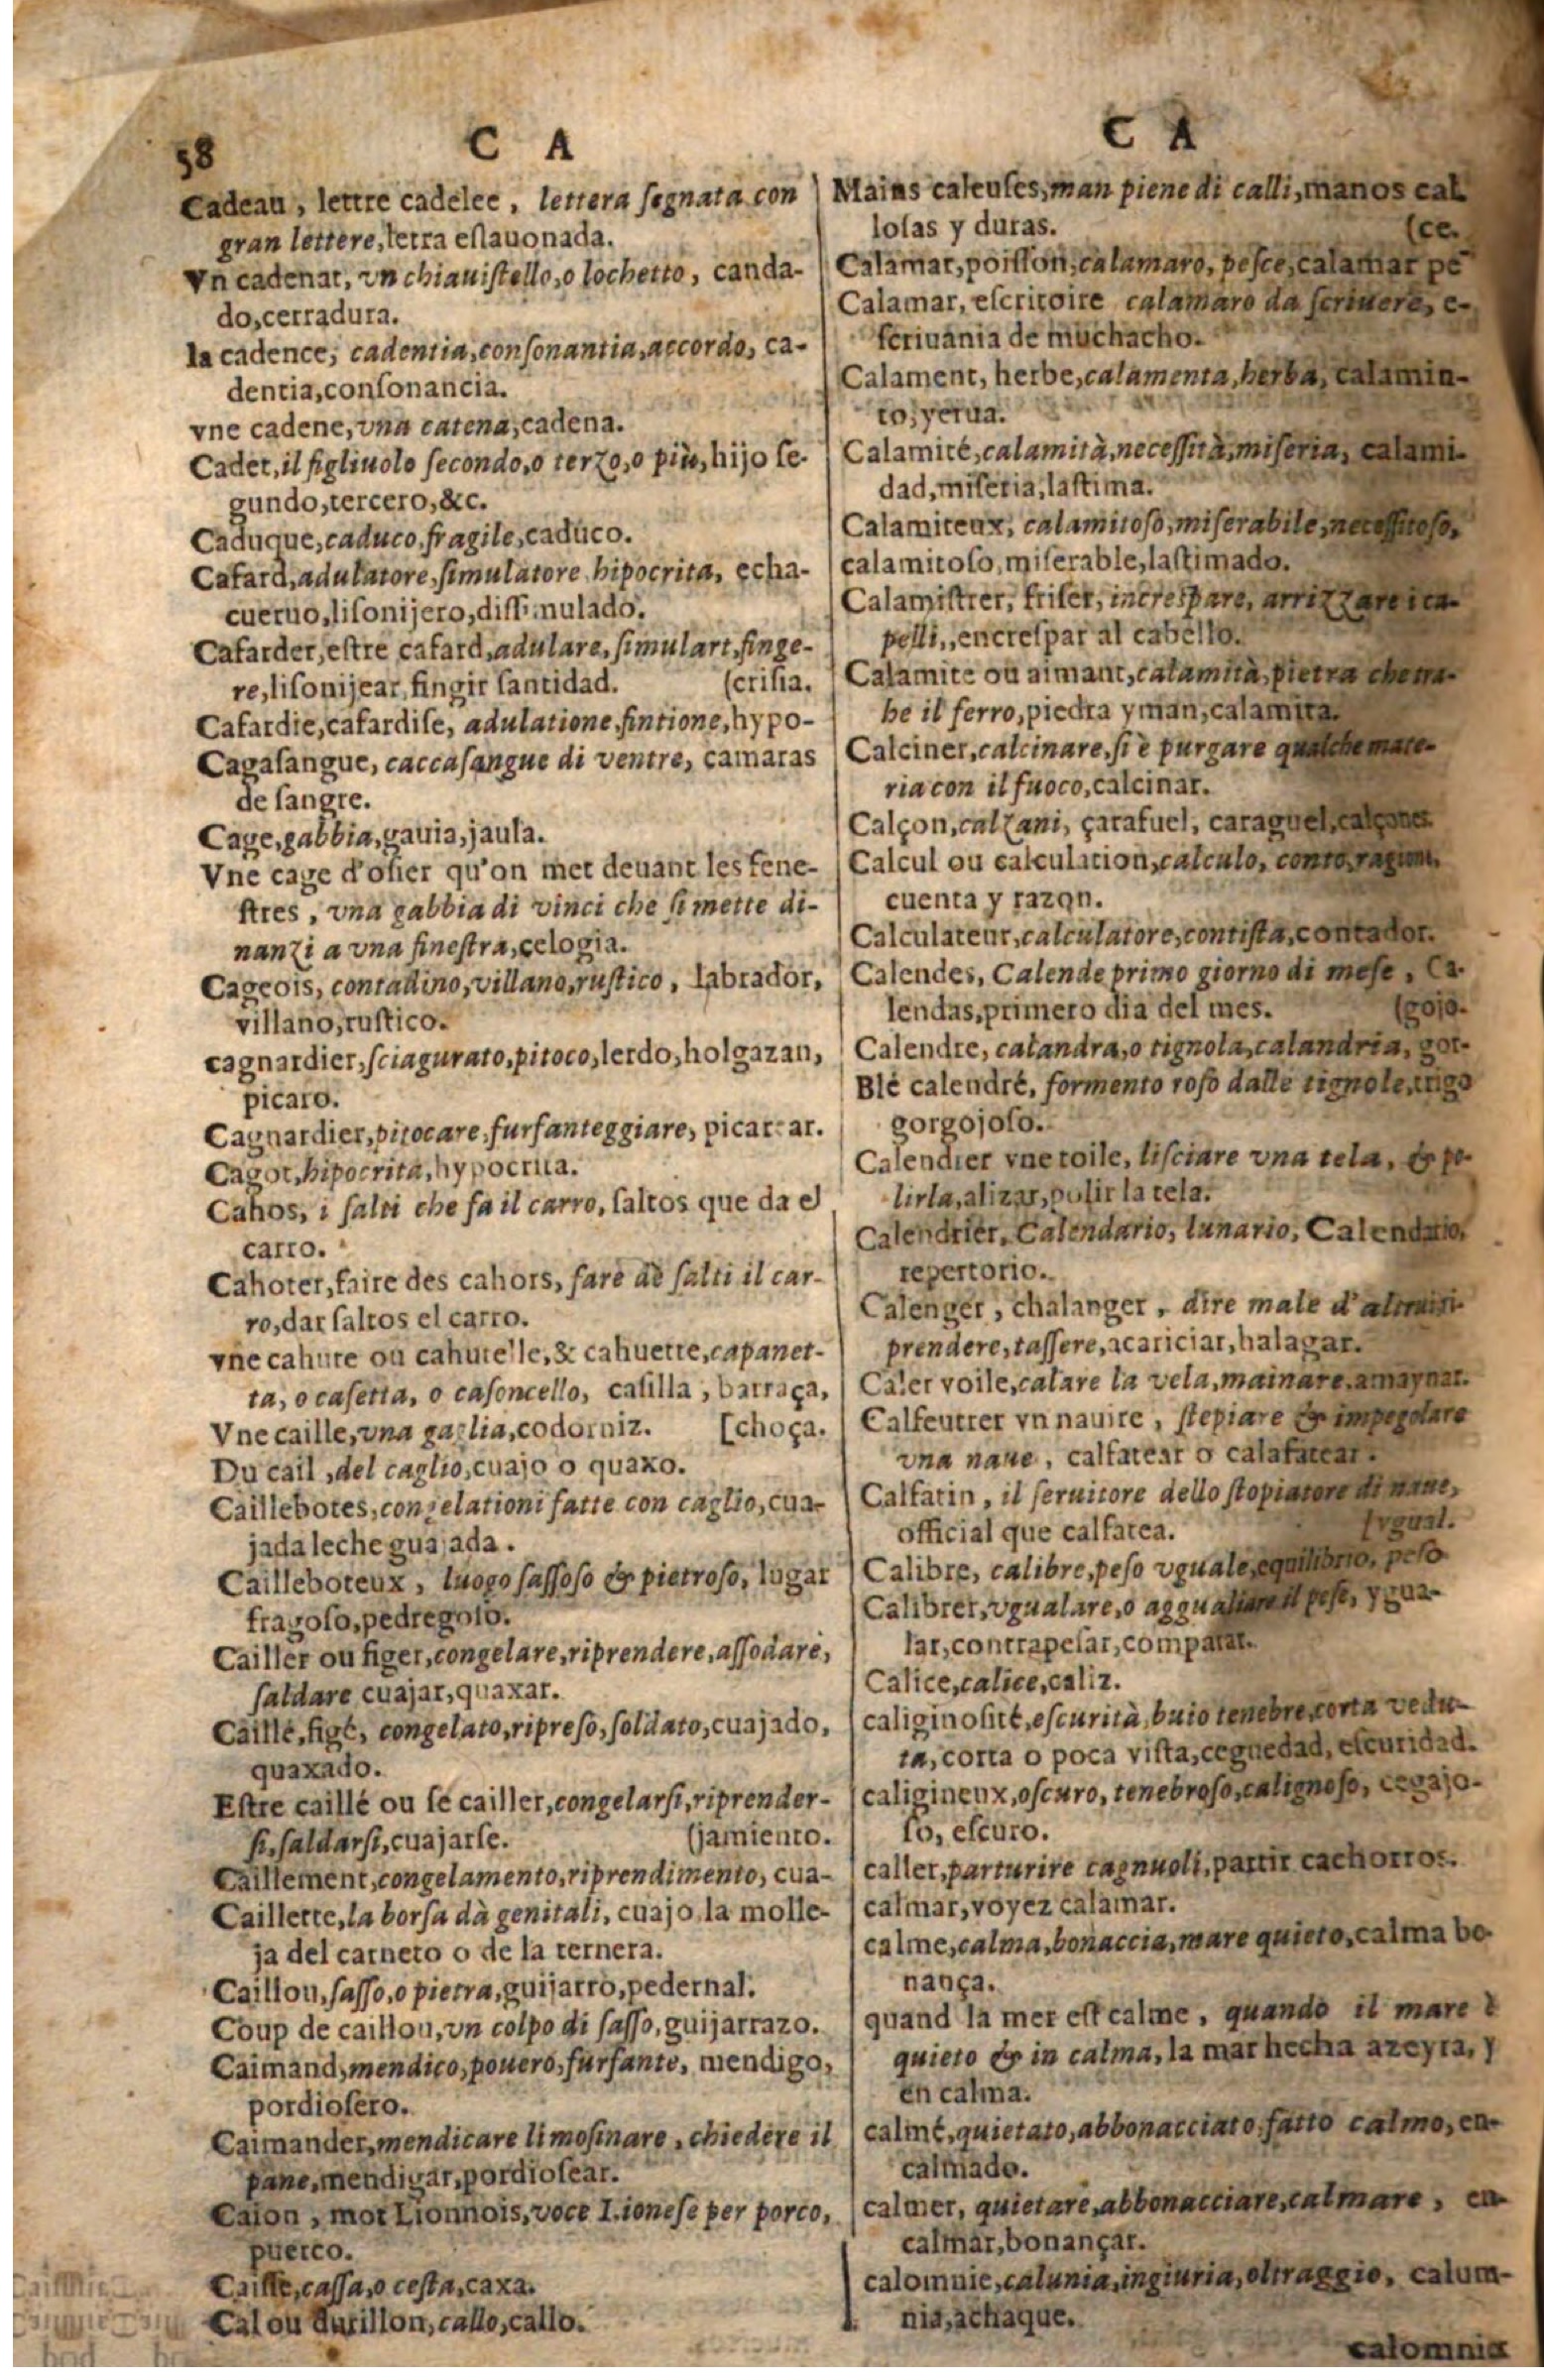 58
C A
Cadeau, lettre cadelee, lettera ſegnata con
gran lettere, letra eſlauonada.
Vn cadenat, vn chiauiſtello, o lochetto, canda-
do, cerradura.
la cadence, cadentia, conſonantia, accordo, ca-
dentia, conſonancia.
vne cadene, vna catena, cadena.
Cadet, il figliuolo ſecondo, o terzo, o più, hijo ſe-
gundo, tercero, &c.
Caduque, caduco, fragile, caduco.
Cafard, adulatore, ſimulatore hipocrita, echa-
cueruo, liſonijero, diſſimulado.
Cafarder, eſtre cafard, adulare, ſimulart, finge-
re, liſonijear, fingir ſantidad. (criſia.
Cafardie, cafardiſe, adulatione, fintione, hypo-
Cagaſangue, caccaſangue di ventre, camaras
de ſangre.
Cage, gabbia, gauia, jaula.
Vne cage d'oſier qu'on met deuant les fene-
ſtres, vna gabbia di vinci che ſi mette di-
nanzi a vna fineſtra, çelogia.
Cageois, contadino, villano, ruſtico, labrador,
villano, ruſtico.
cagnardier, ſciagurato, pitoco, lerdo, holgazan,
picaro.
Cagnardier, pitocare, furfanteggiare, picarear.
Cagot, hipocrita, hypocrita.
Cahos, i ſalti che fa il carro, ſaltos que da el
carro.
Cahoter, faire des cahors, fare de ſalti il car-
ro, dar ſaltos el carro.
vne cahute ou cahutelle, & cahuette, capanet-
ta, o caſetta, o caſoncello, caſilla, barraça,
Vne caille, vna gaglia, codorniz. [choça.
Du cail, del caglio, cuajo o quaxo.
Caillebotes, congelationi fatte con caglio, cua-
jada leche guajada.
Cailleboteux, luogo ſaſſoſo & pietroſo, lugar
fragoſo, pedregoſo.
Cailler ou figer, congelare, riprendere, aſſodare,
ſaldare cuajar, quaxar.
Caillé, figé, congelato, ripreſo, ſoldato, cuajado,
quaxado.
Eſtre caillé ou ſe cailler, congelarſi, riprender-
ſi, ſaldarſi, cuajarſe. (jamiento.
Caillement, congelamento, riprendimento, cua-
Caillette, la borſa dà genitali, cuajo la molle-
ja del carnero o de la ternera.
Caillou, ſaſſo, o pietra, guijarro, pedernal.
Coup de caillou, vn colpo di ſaſſo, guijarrazo.
Caimand, mendico, pouero, furfante, mendigo,
pordioſero.
Caimander, mendicare limoſinare, chiedere il
pane, mendigar, pordioſear.
Caion, mot Lionnois, voce Lioneſe per porco,
puerco.
Caiſſe, caſſa, o ceſta, caxa.
Cal ou durillon, callo, callo.
C A
Mains caleuſes, man piene di calli, manos cal
loſas y duras. (ce.
Calamar, poiſſon, calamaro, peſce, calamar pe
Calamar, eſcritoire calamaro da ſcriuere, e-
ſcriuania de muchacho.
Calament, herbe, calamenta, herba, calamin-
to, yerua.
Calamité, calamità, neceſſità, miſeria, calami-
dad, miſeria, laſtima.
Calamiteux, calamitoſo, miſerabile, neceſſitoſo,
calamitoſo, miſerable, laſtimado.
Calamiſtrer, friſer, increſpare, arrizzare i ca-
pelli,, encreſpar al cabello.
Calamite ou aimant, calamità, pietra che tra-
he il ferro, piedra yman, calamita.
Calciner, calcinare, ſi è purgare qualche mate-
ria con il fuoco, calcinar.
Calçon, calzani, çarafuel, caraguel, calçones.
Calcul ou calculation, calculo, conto, ragioni,
cuenta y razon.
Calculateur, calculatore, contiſta, contador.
Calendes, Calende primo giorno di meſe, Ca-
lendas, primero dia del mes. (gojo.
Calendre, calandra, o tignola, calandria, gor-
Blé calendré, formento roſo dalle tignole, trigo
gorgojoſo.
Calendrer vne toile, liſciare vna tela, & po-
lirla, alizar, pulir la tela.
Calendrier, Calendario, lunario, Calendario,
repertorio.
Calenger, chalanger, dire male d'altrui ri-
prendere, taſſere, acariciar, halagar.
Caler voile, calare la vela, mainare, amaynar.
Calfeutrer vn nauire, ſtepiare & impegolare
vna naue, calfatear o calafatear.
Calfatin, il ſeruitore dello ſtopiatore di naue,
official que calfatea. [ygual.
Calibre, calibre, peſo vguale, equilibrio, peſo
Calibrer, vgualare, o aggualiare il peſe, ygua-
lar, contrapeſar, comparar.
Calice, calice, caliz.
caliginoſité, eſcurità, buio tenebre, corta vedu-
ta, corta o poca viſta, ceguedad, eſcuridad.
caligineux, oſcuro, tenebroſo, calignoſo, cegajo-
ſo, eſcuro.
caller, parturire cagnuoli, partir cachorros.
calmar, voyez calamar.
calme, calma, bonaccia, mare quieto, calma bo-
nança.
quand la mer eſt calme, quando il mare è
quieto & in calma, la mar hecha azeyta, y
en calma.
calmé, quietato, abbonacciato, fatto calmo, en-
calmado.
calmer, quietare, abbonacciare, calmare, en-
calmar, bonançar.
calomnie, calunia, ingiuria, oltraggio, calum-
nia, achaque.
calomnia